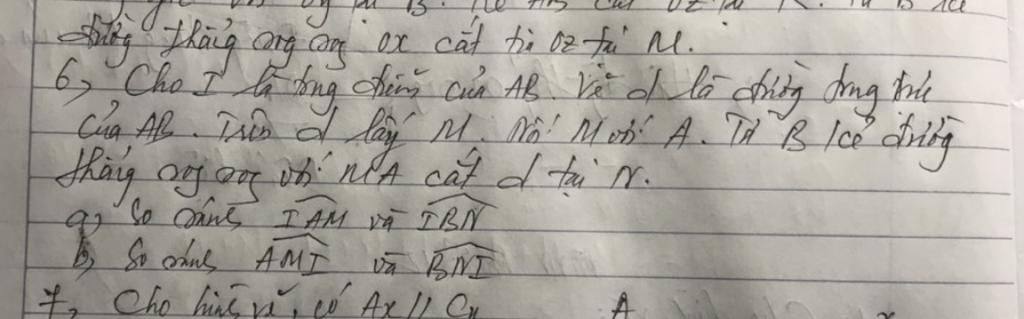 đường thẳng song song Ox cắt tia Oz tại M.
6, Cho I là trung điểm của AB. Vẽ d là đường trung trực
của AB. Trên d lấy M. Nối M với A. Từ B kẻ đường
thẳng song song với MA cắt d tại N.
a, So sánh IAM và IBN
b, So sánh AMI và BNI
7, Cho hình vẽ, có Ax // Cy
A
x